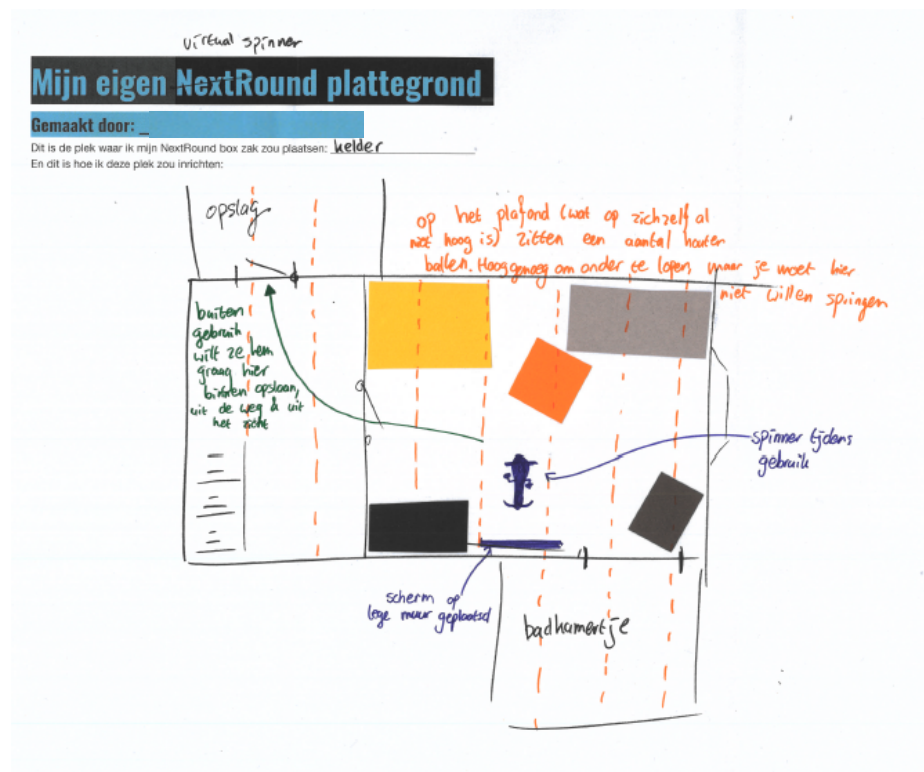 virtual spinner
Mijn eigen NextRound plattegrond
Gemaakt door: _
Dit is de plek waar ik mijn NextRound box zak zou plaatsen: kelder
En dit is hoe ik deze plek zou inrichten:
opslag
op het plafond (wat op zichzelf al
niet hoog is) zitten een aantal houten
balken. Hoog genoeg om onder te lopen, maar je moet hier
niet willen springen
buiten
gebruik
wilt ze hem
graag hier
binnen opslaan,
uit de weg & uit
het zicht
spinner tijdens
gebruik
scherm op
lege muur geplaatsd
badkamertje